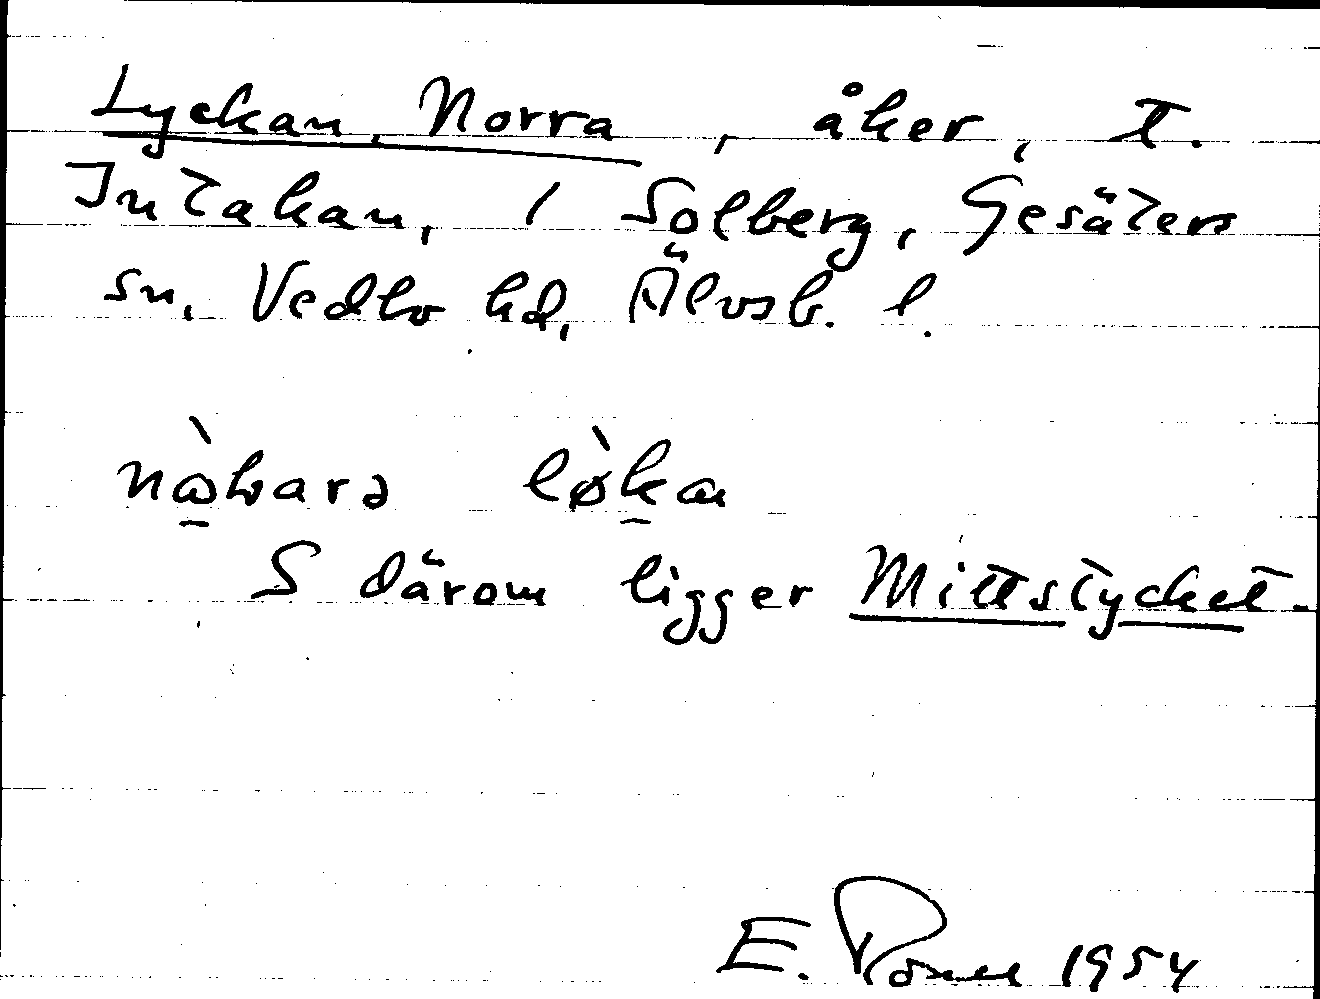 Lyckan, Norra, åker, t.
Intakan, 1 Solberg, Gesäters
sn. Vedbo hd, Älvsb. l.
S därom ligger Mittstycket.
E. 1954